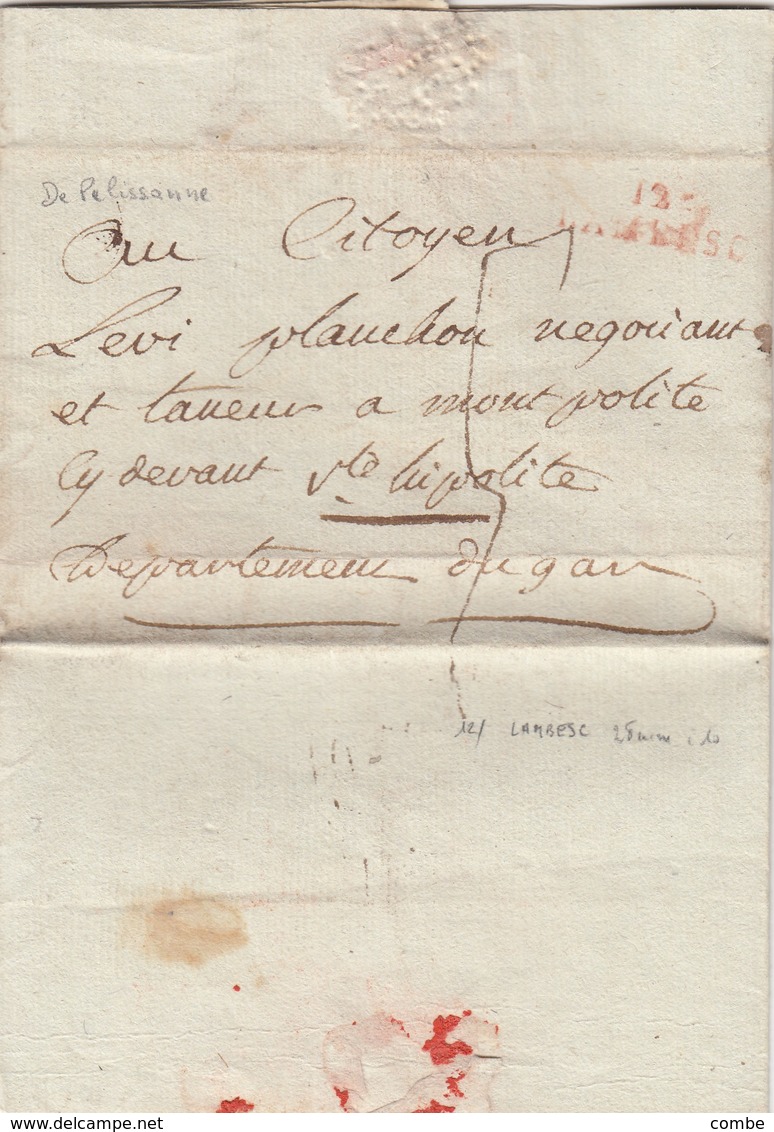 De Pelissanne
12
LAMBESC
Au Citoyen
Levi planchon negociant
et taneur a mont polite
Cy devant Ste hipolite
Departement du gar
12/ LAMBESC 28 mm
www.delcampe.net
combe